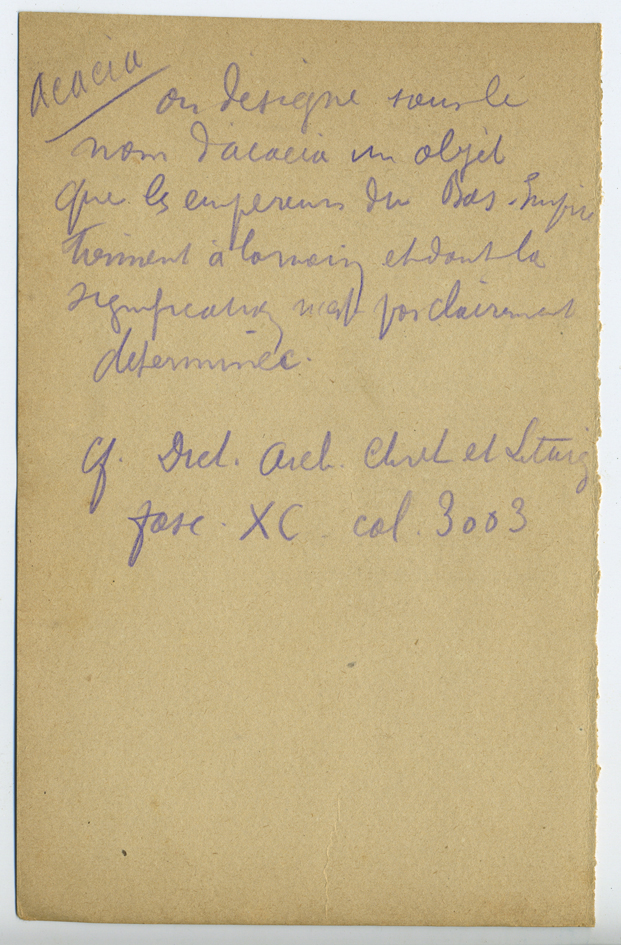 acacia
on designe sous le
nom d'acacia un objet
que les empereurs du Bas-Empire
tiennent à la main et dont la
signification n'est pas clairement
déterminée.
cf. Dict. Arch. Chret et Liturg
fasc. XC col. 3003